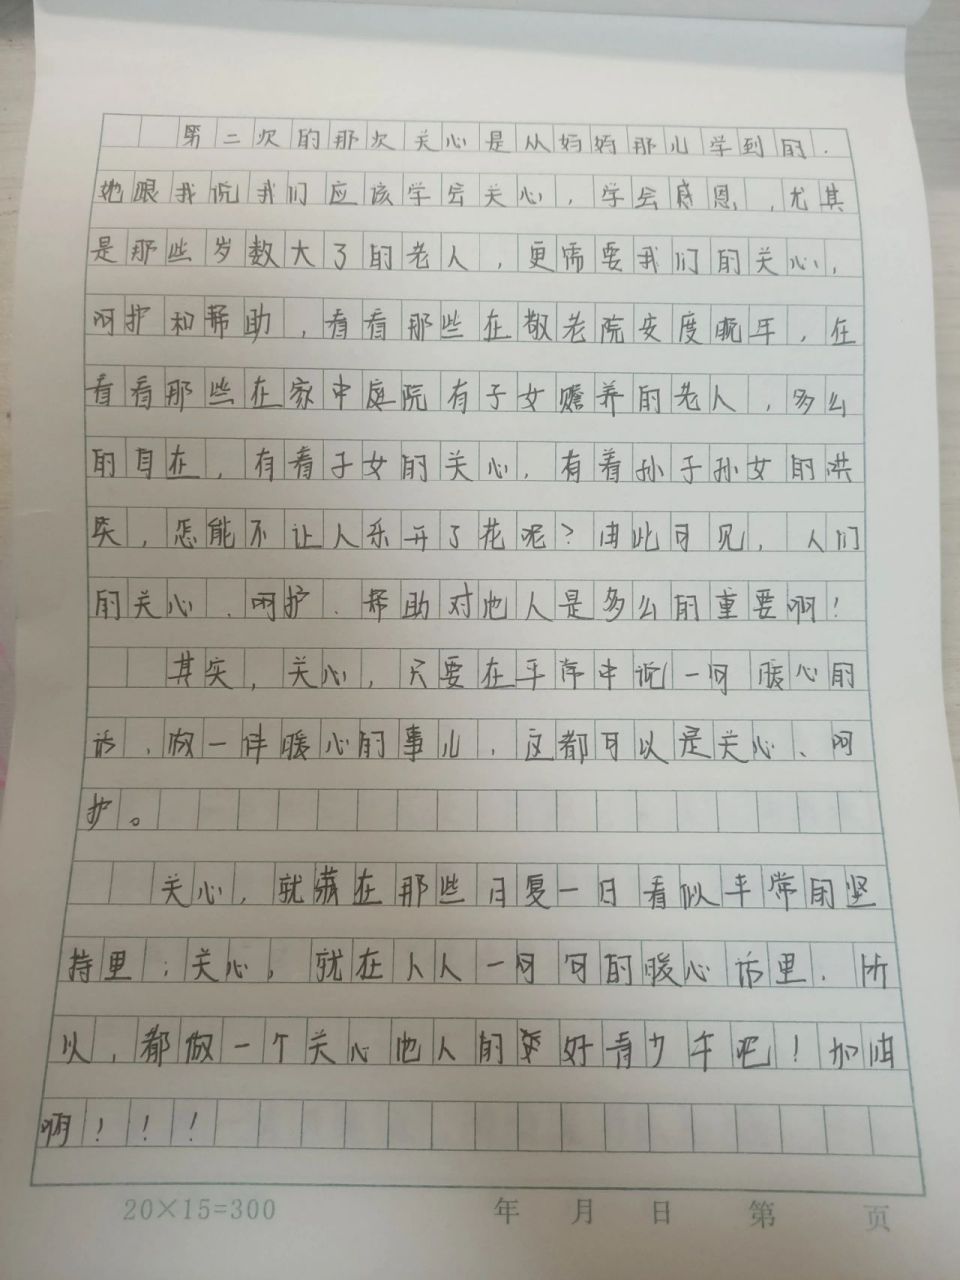 第二次的那次关心是从妈妈那儿学到的.
她跟我说我们应该学会关心,学会感恩,尤其
是那些岁数大了的老人,更需要我们的关心,
呵护和帮助,看看那些在敬老院安度晚年,在
看看那些在家中庭院有子女赡养的老人,多么
的自在,有着子女的关心,有着孙子孙女的洪
失,怎能不让人乐开了花呢?由此可见,人们
的关心、呵护、帮助对他人是多么的重要啊!
其实,关心,只要在平常中说一句暖心的
话,做一件暖心的事儿,这都可以是关心、呵
护。
关心,就藏在那些日复一日看似平常的坚
持里;关心,就在人人一句句的暖心话里.所
以,都做一个关心他人的好青少年吧!加油
啊!!!
20×15=300 年 月 日 第 页